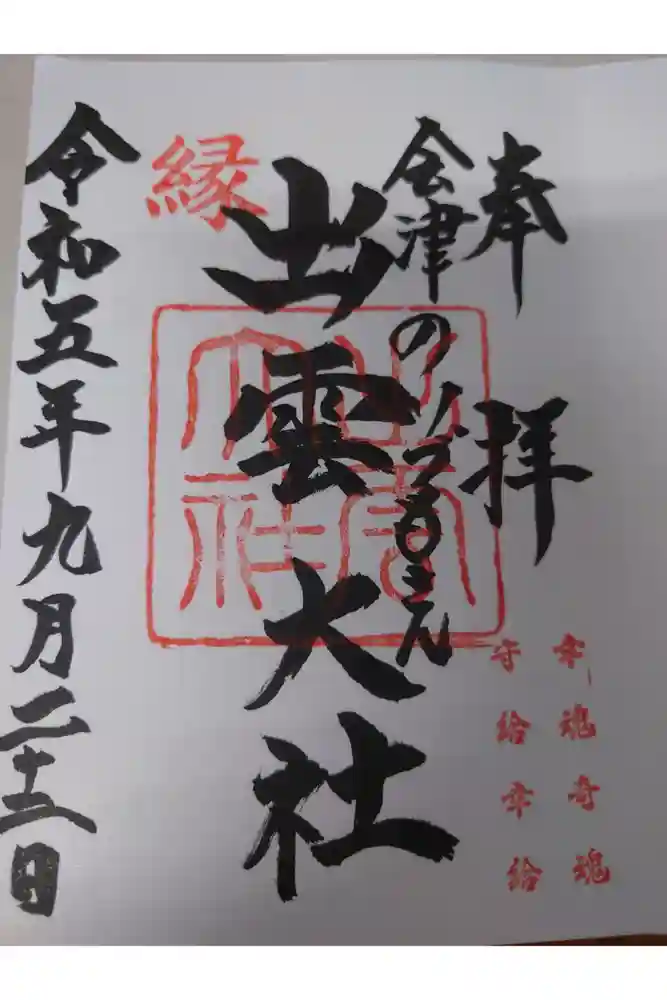 奉拝
幸魂奇魂
守給幸給
会津のいづもさん
出雲大社
縁
出雲
大社
令和五年九月二十二日